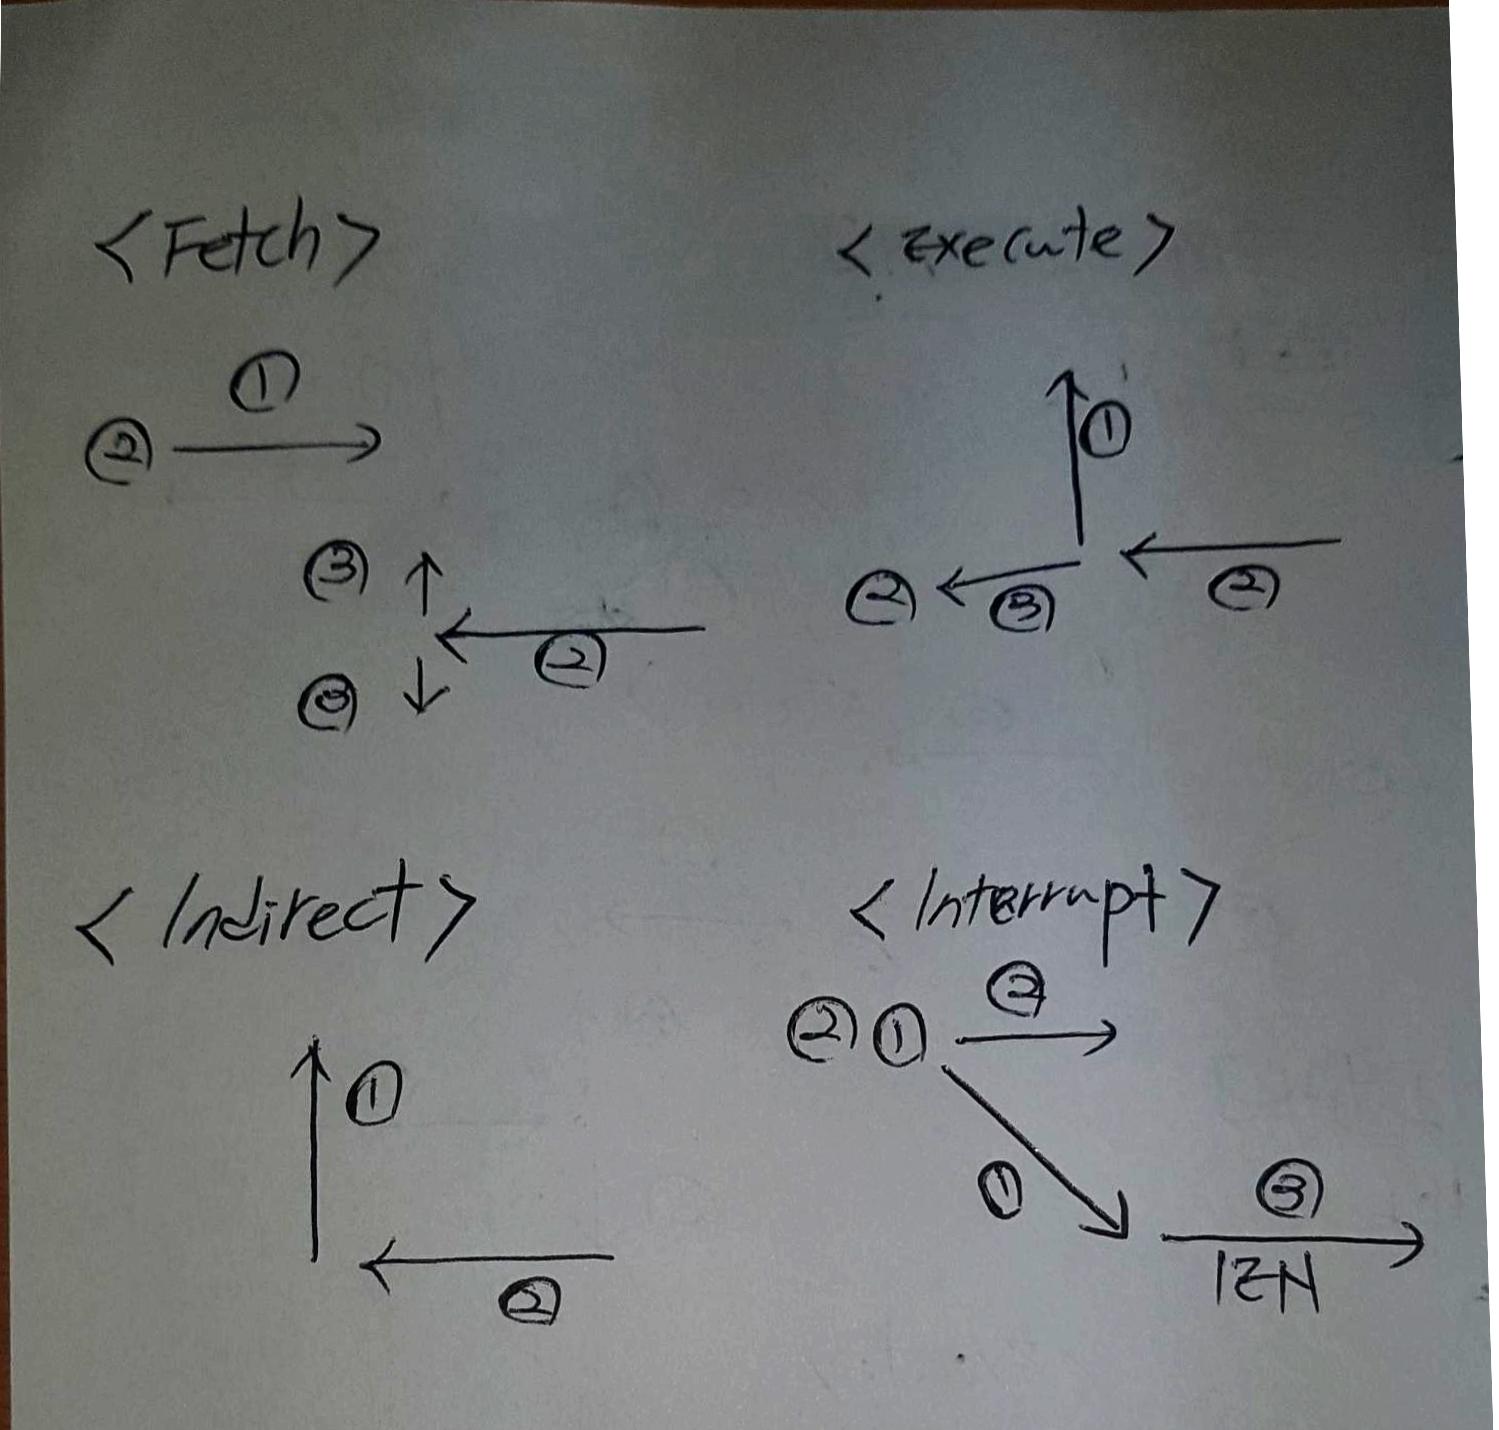 <Fetch>
①
②
③
②
③
<Execute>
①
②
③
②
<Indirect>
①
②
<Interrupt>
②
② ①
①
③
IEN